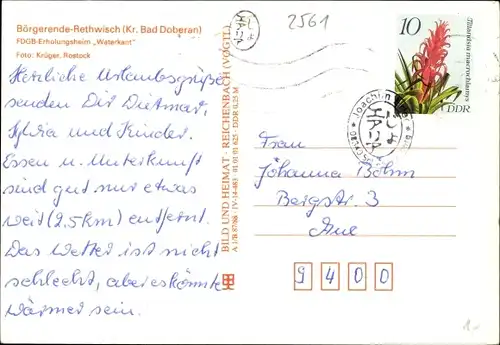 Börgerende-Rethwisch (Kr. Bad Doberan)
FDGB-Erholungsheim „Waterkant“
Foto: Krüger, Rostock
Herzliche Urlaubsgrüße
senden Dir Dietmar,
Sylvia und Kinder.
Essen u. Unterkunft
sind gut nur etwas
weit (2,5 km) entfernt.
Das Wetter ist nicht
schlecht, aber es könnte
wärmer sein.
BILD UND HEIMAT · REICHENBACH (VOGTL)
A 1/B 87/88 · IV-14-483 · 01 01 01 625 · DDR 0,25 M
2561
10
Tillandsia macrochlamys
DDR
Joachim
Frau
Johanna Böhm
Bergstr. 3
Aue
9400